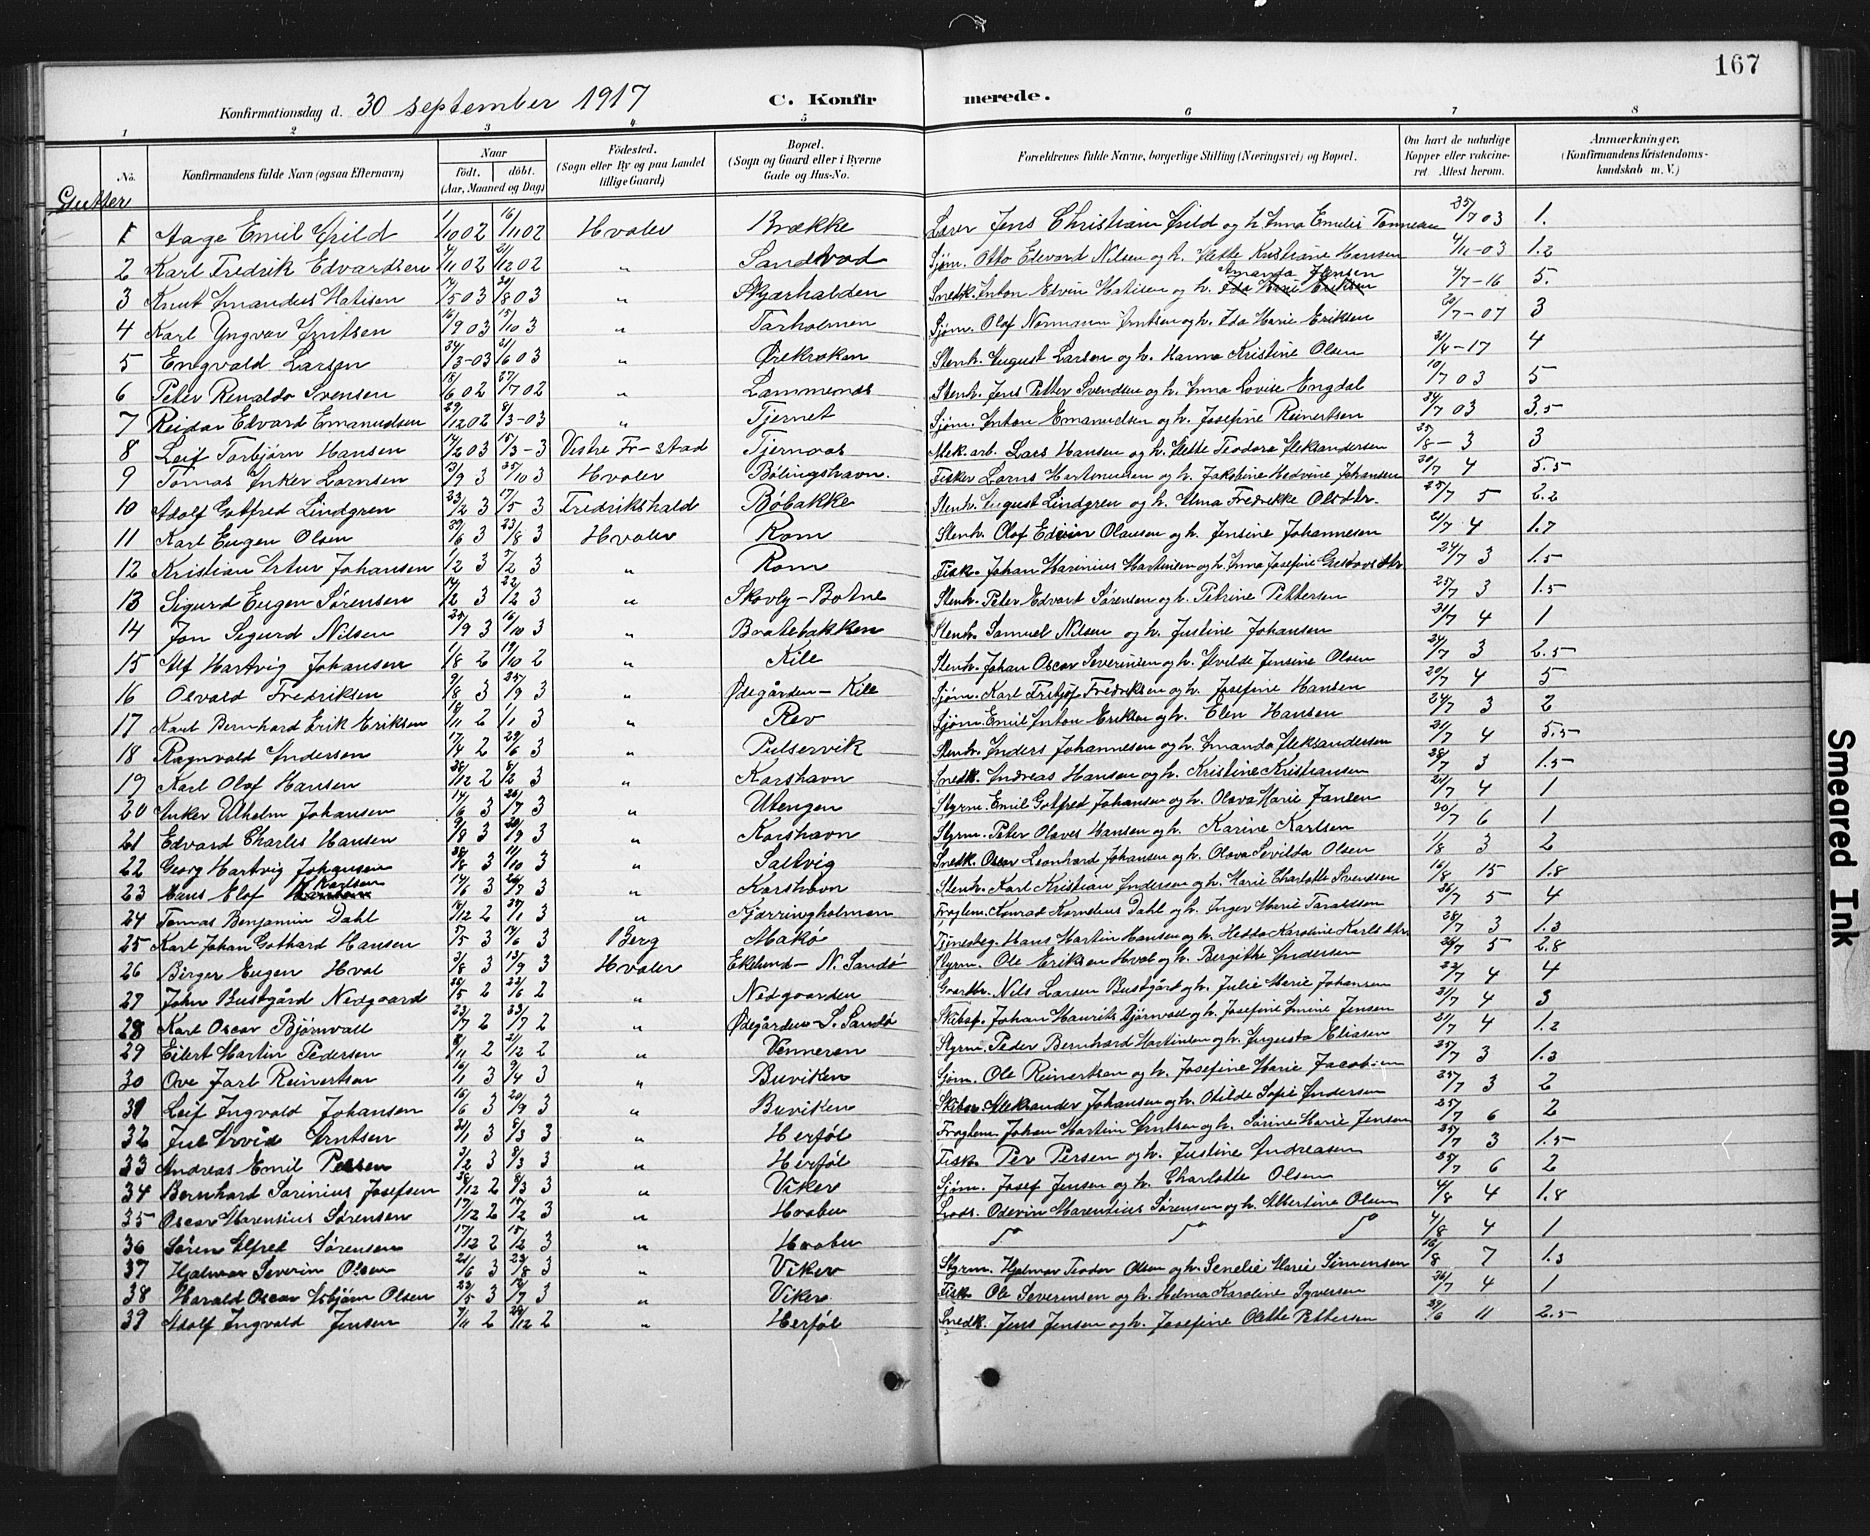 167
Konfirmationsdag d. 30 september 1917
C. Konfirmerede.
1 2 3 4 5 6 7 8
No. Konfirmandens fulde Navn (ogsaa Efternavn) Naar født. døbt. (Aar, Maaned og Dag) Fødested. (Sogn eller By og paa Landet tillige Gaard) Bopæl. (Sogn og Gaard eller i Byerne Gade og Hus-No. Forældrenes fulde Navne, borgerlige Stilling (Næringsvei) og Bopæl. Om havt de naturlige Kopper eller vakcineret. Attest herom. Anmærkninger, (Konfirmandens Kristendomskundskab m. V.)
Gutter
1 Aage Emil 1/10 02 16/11 02 Hvaler Brække Lærer Jens Christian og h. Anna Emelie 25/7 03 1.
2 Karl Fredrik Edvardsen 4/11 02 21/12 02 " Sandvad Sjøm. Otto Edvard Nilsen og h. Hette Kristiane Hansen 4/11-03 1.2
3 Knut Amandus Hatisen 5 03 20/8 03 " Skjærhalden Snedk. Anton Edvin Hatisen og h. Amanda Jensen 4/7-16 5.
4 Karl Yngvar Arntsen 16/9 03 15/10 3 " Tarholmen Sjøm. Olof Normann Arntsen og h. Ida Marie Eriksen 20/7-07 3
5 Engvald Larsen 24/3-03 21/6 03 " Ørekroken Stenh. August Larsen og h. Hanna Kristine Olsen 4
6 Peter Renaldo Svensen 18/6 02 27/7 02 " Stenh. Jens Petter Svendsen og h. Anna Lovise Engdal 10/7 03 5
7 Reidar Edvard Emanudsen 29/12 02 8/3-03 " Tjernet Sjøm. Anton Emanudsen og h. Josefine Reinertsen 24/7 03 3.5
8 Leif Torbjørn Hansen 14/2 03 15/3-3 Vestre Fr-stad Mek. arb. Lars Hansen og h. Hette Teodora Aleksandersen 25/8-3 3
9 Tomas Anker Larnsen 3/9 3 25/10 3 Hvaler Bølingshavn. Fisker Larns Hartmutsen og h. Jakobine Hedvine Johansen 20/7 4 5.5
10 Adolf Gotfred Lindgren 23/2 3 17/5 3 Fredrikshald Bøbakke Stenh. August Lindgren og h. Alma Fredrikke Olsdtr. 25/7 5 2.2
11 Karl Eugen Olsen 29/6 3 23/8 3 Hvaler Rom Stenh. Olof Edvin Olausen og h. Jensine Johannesen 21/7 4 1.7
12 Kristian Artur Johansen 1/2 3 7/2 3 " Rom Fisk. Johan Marinius Martinsen og h. Anna Josefine Gustavsdtr. 24/7 3 1.5
13 Sigurd Eugen Sørensen 14/2 3 22/2 3 " Skovly-Botne Stenh. Peter Edvart Sørensen og h. Petrine Pettersen 25/7 3 1.5
14 Jon Sigurd Nilsen 25/9 3 16/10 3 " Bratebakken Stenh. Samuel Nilsen og h. Justine Johansen 21/7 4 1
15 Alf Hartvig Johansen 1/8 2 19/10 2 " Kile Stenh. Johan Oscar Severinsen og h. Alvilde Jensine Olsen 24/7 3 2.5
16 Osvald Fredriksen 9/8 3 25/9 3 " Ødegården-Kile Sjøm. Karl Fritjof Fredriksen og h. Josefine Hansen 20/7 4 5
17 Karl Bernhard Erik Eriksen 18/11 2 1/1 3 " Rev Sjøm. Emil Anton Eriksen og h. Elen Hansen 24/7 3 2
18 Ragnvald Andersen 17/4 2 29/6 3 " Pulservik Stenh. Anders Johannesen og h. Amanda Aleksandersen 21/7 4 5.5
19 Karl Olof Hansen 28/12 2 8/2 3 " Korshavn Snedk. Andreas Hansen og h. Kristine Kristiansen 28/7 3 1.5
20 Anker Vilhelm Johansen 14/6 3 26/7 3 " Utengen Styrm. Emil Gotfred Johansen og h. Olava Marie Jansen 21/7 4 1
21 Edvard Charles Hansen 9/8 3 20/9 3 " Korshavn Styrm. Peter Olaves Hansen og h. Karine Karlsen 20/7 6 1
22 Georg Hartvig Johansen 28/8 3 11/10 3 " Saltvig Snedk. Oscar Leonhard Johansen og h. Olava Sevilda Olsen 1/8 3 2
23 Hans Elof Karlsen 14/6 3 26/7 3 " Korshavn Stenh. Karl Kristian Andersen og h. Marie Charlotte Svendsen 16/8 15 1.8
24 Tomas Benjamin Dahl 16/12 2 25/1 3 " Kjærringholmen Konrad Kornelius Dahl og h. Inger Marie Taraldsen 26/7 5 4
25 Karl Johan Gothard Hansen 5/5 3 14/6 3 Berg Makø Hans Martin Hansen og h. Hedda Karoline Karlsdtr. 28/7 3 1.3
26 Birger Eugen Hval 3/8 3 13/9 3 Hvaler Ekelund-N. Sandø Styrm. Ole Eriksen Hval og h. Bergithe Andersen 26/7 5 2.8
27 John Bustgård Nedgaard 26/5 2 22/6 2 " Nedgaarden Gaardbr. Nils Larsen Bustgård og h. Julie Marie Johansen 22/7 4 4
28 Karl Oscar Bjørnvall 23/7 2 " Ødegården-S. Sandø Skibsf. Johan Maurits Bjørnvall og h. Josefine Amine Jensen 21/7 4 3
29 Eilert Martin Pedersen 8/11 2 21/12 2 " Venneren Styrm. Peder Bernhard Martinsen og h. Augusta Eliasen 21/7 4 1.2
30 Ove Jarl Reinertsen 16/1 3 9/4 3 " Buviken Sjøm. Ole Reinertsen og h. Josefine Marie Jacobsen 25/7 3 1.3
31 Leif Ingvald Johansen 16/6 3 20/9 3 " Buviken Aleksander Johansen og h. Otilde Sofie Andersen 25/7 3 2
32 Jul Arvid Arntsen 21/1 3 8/3 3 " Herføl Johan Martin Arntsen og h. Sørine Marie Jensen 25/7 6 2
33 Andreas Emil Persen 3/2 3 8/3 3 " Herføl Fisk. Per Persen og h. Justine Andreasen 25/7 3 1.5
34 Bernhard Sarinius Josefsen 28/12 2 8/3 3 " Viker Sjøm. Josef Jensen og h. Charlotte Olsen 25/7 6 2
35 Oscar Marensius Sørensen 17/12 2 15/2 3 " Hvabu Lods. Odevin Marentius Sørensen og h. Albertine Olsen 4/8 4 1.8
36 Søren Alfred Sørensen 17/12 2 15/2 3 " Hvabu do do do 4/8 4 1
37 Hjalmar Severin Olsen 21/6 3 23/8 3 " Viker Styrm. Hjalmar Teodor Olsen og h. Senelie Marie Simensen 16/8 7 1.3
38 Harald Oscar Asbjørn Olsen 22/5 3 12/7 3 " Viker Fisk. Ole Severinsen og h. Helma Karoline Syversen 26/7 4 1
39 Adolf Ingvald Jensen 7/11 2 28/12 2 " Herføl Snedk. Jens Jensen og h. Josefine Olette Pettersen 29/6 11 2.5
Smeared Ink